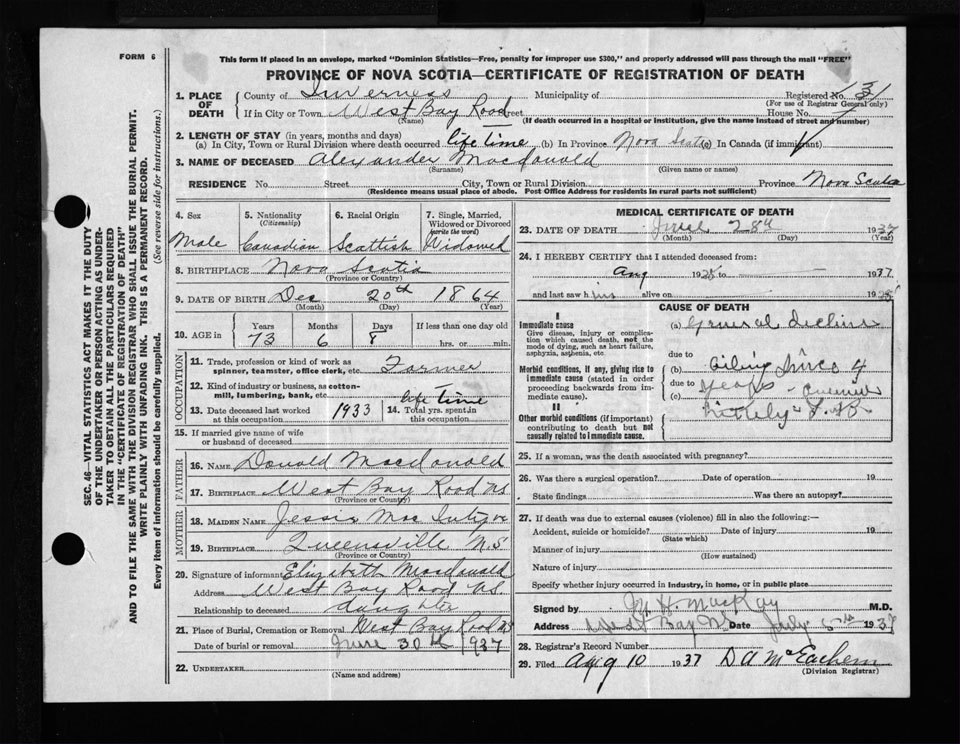 FORM 6
This form if placed in an envelope, marked "Dominion Statistics—Free, penalty for improper use $300," and properly addressed will pass through the mail "FREE"
PROVINCE OF NOVA SCOTIA—CERTIFICATE OF REGISTRATION OF DEATH
SEC. 46—VITAL STATISTICS ACT MAKES IT THE DUTY
OF THE UNDERTAKER OR PERSON ACTING AS UNDER-
TAKER TO OBTAIN ALL THE PARTICULARS REQUIRED
IN THE "CERTIFICATE OF REGISTRATION OF DEATH"
AND TO FILE THE SAME WITH THE DIVISION REGISTRAR WHO SHALL ISSUE THE BURIAL PERMIT.
WRITE PLAINLY WITH UNFADING INK. THIS IS A PERMANENT RECORD.
Every item of information should be carefully supplied. (See reverse side for instructions.)
1. PLACE OF DEATH
County of Inverness Municipality of Registered No.
(For use of Registrar General only)
If in City or Town West Bay Road Street House No.
(Name) (If death occurred in a hospital or institution, give the name instead of street and number)
2. LENGTH OF STAY (in years, months and days)
(a) In City, Town or Rural Division where death occurred life Time (b) In Province Nova Scotia (c) In Canada (if immigrant)
3. NAME OF DECEASED Alexander Macdonald
(Surname) (Given name or names)
RESIDENCE No. Street City, Town or Rural Division Province Nova Scotia
(Residence means usual place of abode. Post Office Address for residents in rural parts not sufficient)
4. Sex
Male
5. Nationality
(Citizenship)
Canadian
6. Racial Origin
Scottish
7. Single, Married,
Widowed or Divorced
(write the word)
Widowed
8. BIRTHPLACE Nova Scotia
(Province or Country)
9. DATE OF BIRTH Dec 20th 1864
(Month) (Day) (Year)
10. AGE in
Years Months Days If less than one day old
73 6 8 hrs. or min.
OCCUPATION
11. Trade, profession or kind of work as
spinner, teamster, office clerk, etc. Farmer
12. Kind of industry or business, as cotton-
mill, lumbering, bank, etc.
13. Date deceased last worked
at this occupation 1933
14. Total yrs. spent in
this occupation life Time
15. If married give name of wife
or husband of deceased
FATHER
16. NAME Donald Macdonald
17. BIRTHPLACE West Bay Road NS
(Province or Country)
MOTHER
18. MAIDEN NAME Jessie
19. BIRTHPLACE Queensville N.S
(Province or Country)
20. Signature of informant Elizabeth Macdonald
Address West Bay Road NS
Relationship to deceased daughter
21. Place of Burial, Cremation or Removal West Bay Road NS
Date of burial or removal June 30th 1937
22. UNDERTAKER
(Name and address)
MEDICAL CERTIFICATE OF DEATH
23. DATE OF DEATH June 28th 1937
(Month) (Day) (Year)
24. I HEREBY CERTIFY that I attended deceased from:
Aug 19 — 1937
and last saw him alive on 19
CAUSE OF DEATH
I
Immediate cause
Give disease, injury or complica-
tion which caused death, not the
mode of dying, such as heart failure,
asphyxia, asthenia, etc.
(a) General decline
due to
Morbid conditions, if any, giving rise to
immediate cause (stated in order
proceeding backwards from im-
mediate cause).
(b) ailing since 4
due to
(c) years
II
Other morbid conditions (if important)
contributing to death but not
causally related to immediate cause.
25. If a woman, was the death associated with pregnancy?
26. Was there a surgical operation? Date of operation 19
State findings Was there an autopsy?
27. If death was due to external causes (violence) fill in also the following:—
Accident, suicide or homicide? Date of injury 19
(State which)
Manner of injury
(How sustained)
Nature of injury
Specify whether injury occurred in industry, in home, or in public place
Signed by H. MacKay M.D.
Address West Bay NS Date July 5th 1937
28. Registrar's Record Number
29. Filed Aug 10 1937 D A McEachern
(Division Registrar)